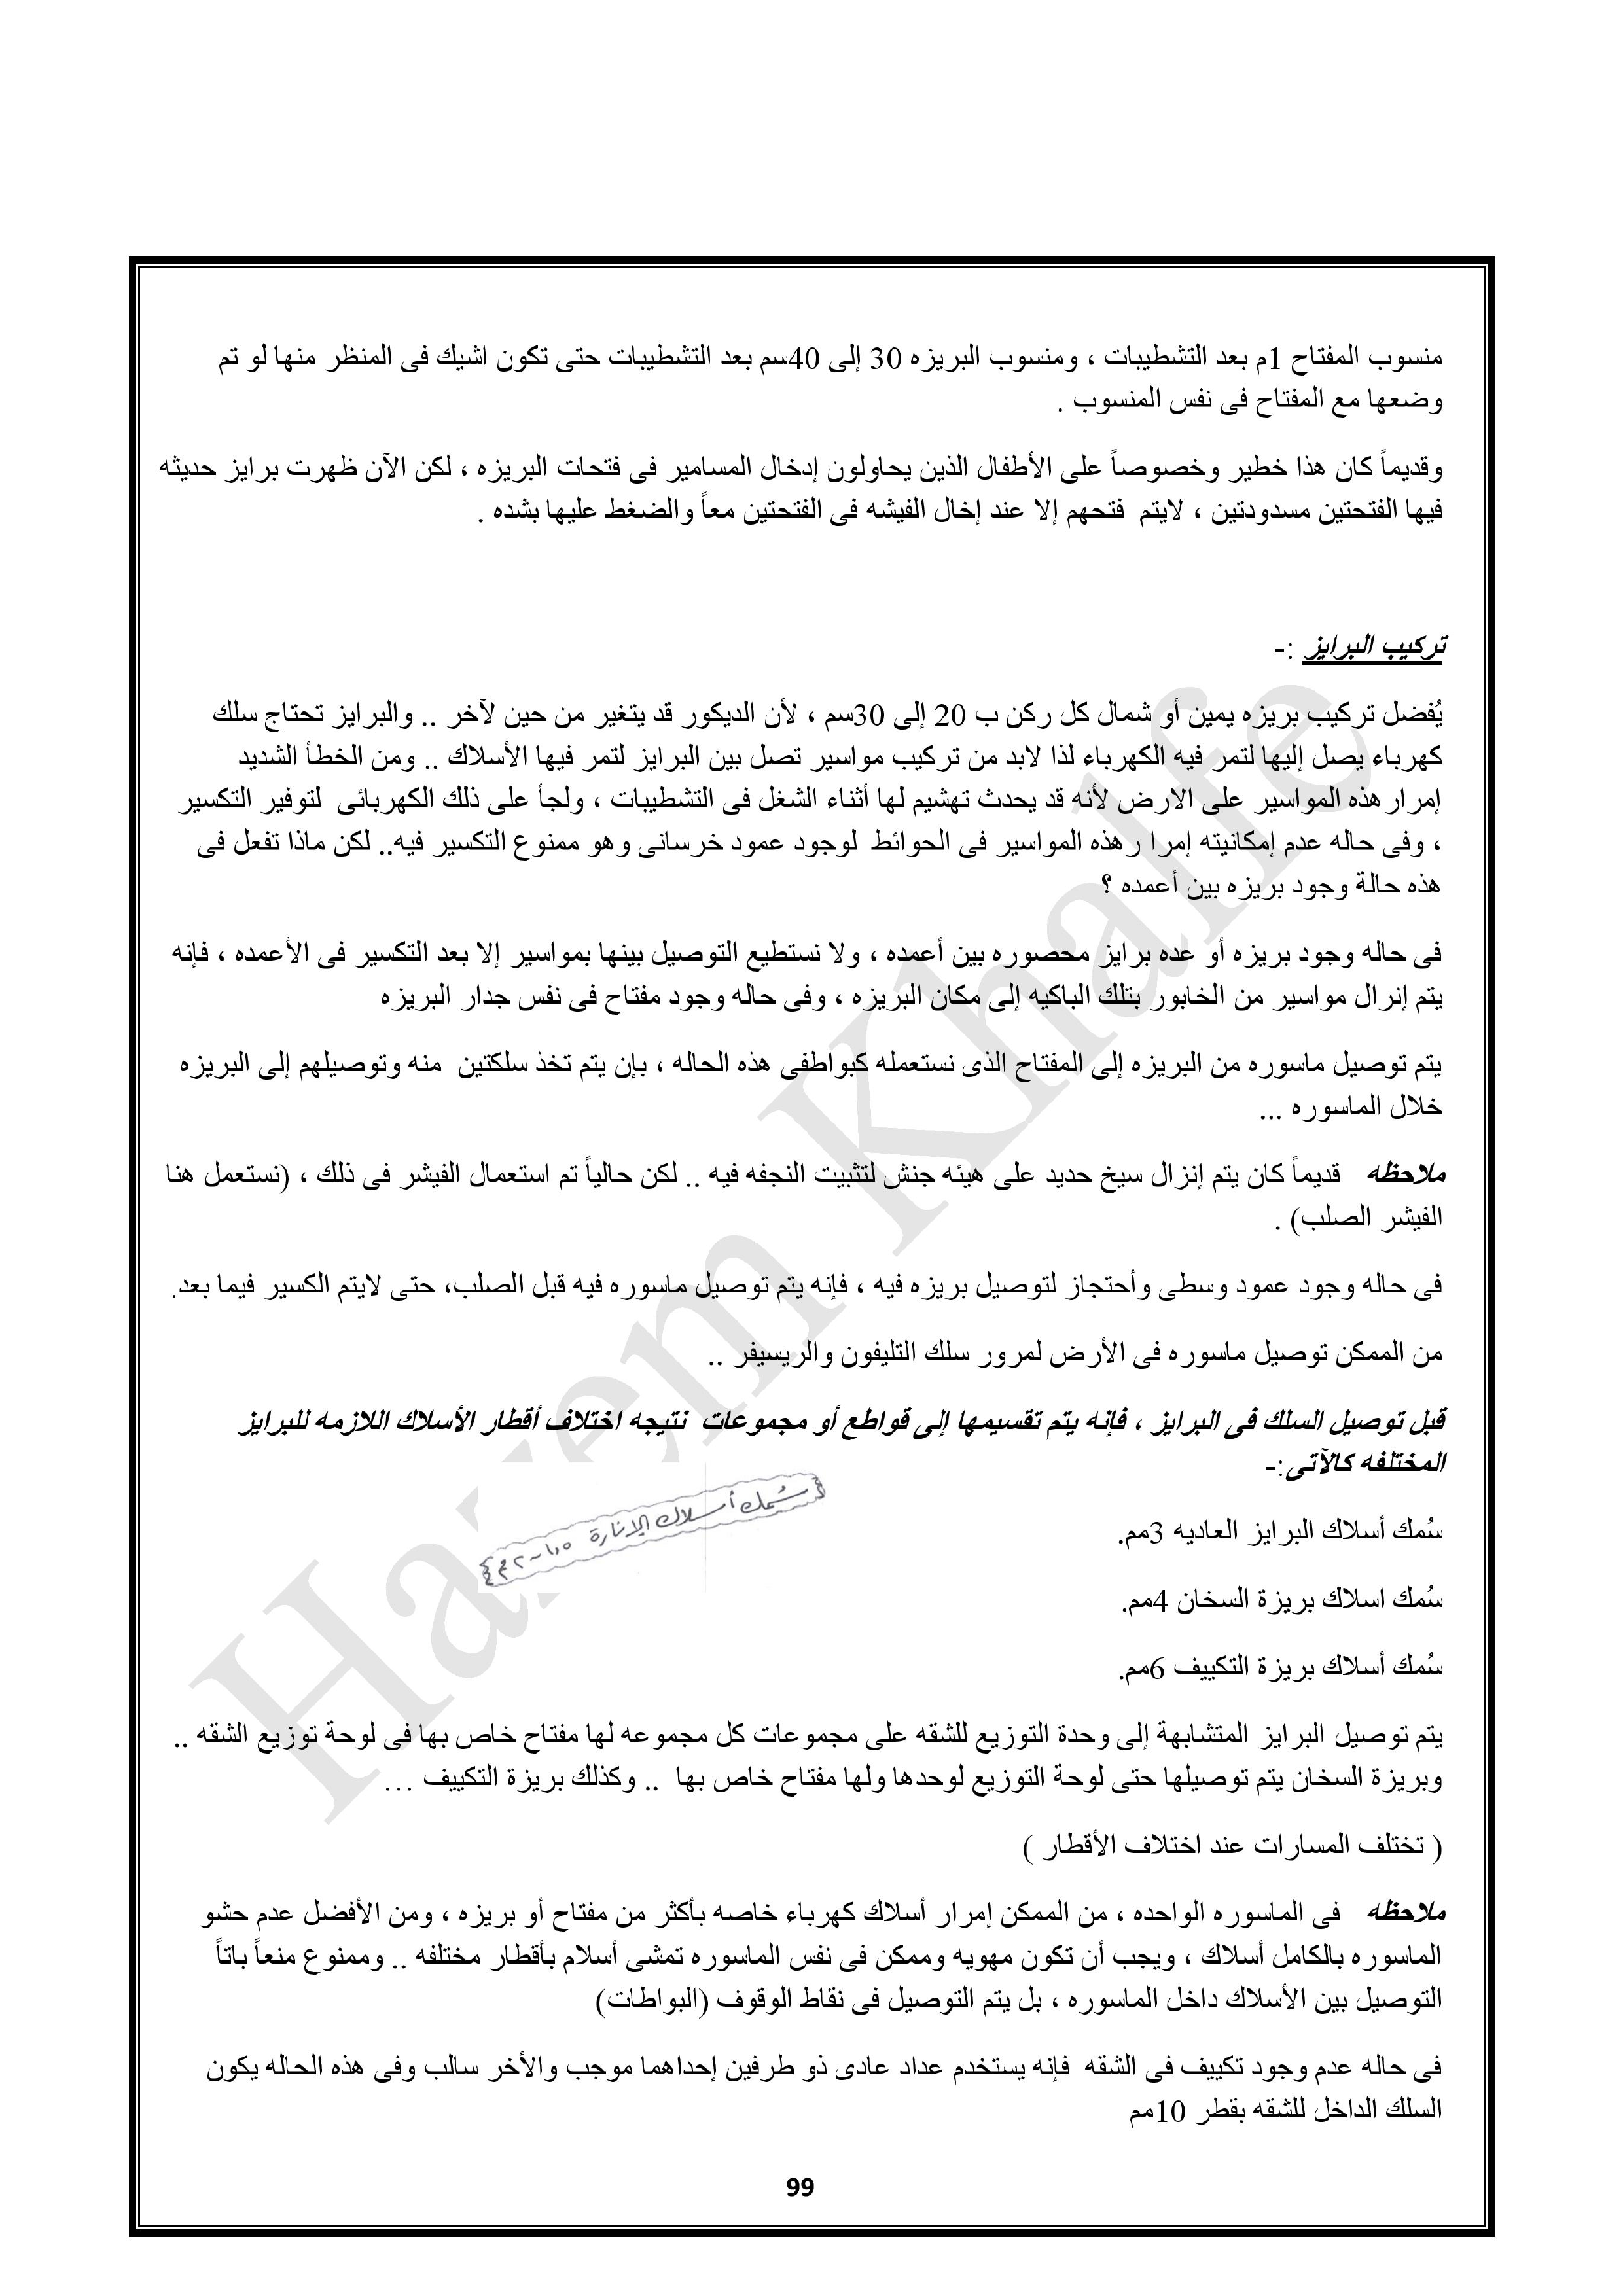 منسوب المفتاح 1م بعد التشطيبات ، ومنسوب البريزه 30 إلى 40سم بعد التشطيبات حتى تكون اشيك فى المنظر منها لو تم
وضعها مع المفتاح فى نفس المنسوب .
وقديماً كان هذا خطير وخصوصاً على الأطفال الذين يحاولون إدخال المسامير فى فتحات البريزه ، لكن الآن ظهرت برايز حديثه
فيها الفتحتين مسدودتين ، لايتم فتحهم إلا عند إخال الفيشه فى الفتحتين معاً والضغط عليها بشده .
تركيب البرايز :-
يُفضل تركيب بريزه يمين أو شمال كل ركن ب 20 إلى 30سم ، لأن الديكور قد يتغير من حين لآخر .. والبرايز تحتاج سلك
كهرباء يصل إليها لتمر فيه الكهرباء لذا لابد من تركيب مواسير تصل بين البرايز لتمر فيها الأسلاك .. ومن الخطأ الشديد
إمرار هذه المواسير على الارض لأنه قد يحدث تهشيم لها أثناء الشغل فى التشطيبات ، ولجأ على ذلك الكهربائى لتوفير التكسير
، وفى حاله عدم إمكانيته إمرا رهذه المواسير فى الحوائط لوجود عمود خرسانى وهو ممنوع التكسير فيه.. لكن ماذا تفعل فى
هذه حالة وجود بريزه بين أعمده ؟
فى حاله وجود بريزه أو عده برايز محصوره بين أعمده ، ولا نستطيع التوصيل بينها بمواسير إلا بعد التكسير فى الأعمده ، فإنه
يتم إنرال مواسير من الخابور بتلك الباكيه إلى مكان البريزه ، وفى حاله وجود مفتاح فى نفس جدار البريزه
يتم توصيل ماسوره من البريزه إلى المفتاح الذى نستعمله كبواطفى هذه الحاله ، بإن يتم تخذ سلكتين منه وتوصيلهم إلى البريزه
خلال الماسوره ...
ملاحظه قديماً كان يتم إنزال سيخ حديد على هيئه جنش لتثبيت النجفه فيه .. لكن حالياً تم استعمال الفيشر فى ذلك ، (نستعمل هنا
الفيشر الصلب) .
فى حاله وجود عمود وسطى وأحتجاز لتوصيل بريزه فيه ، فإنه يتم توصيل ماسوره فيه قبل الصلب، حتى لايتم الكسير فيما بعد.
من الممكن توصيل ماسوره فى الأرض لمرور سلك التليفون والريسيفر ..
قبل توصيل السلك فى البرايز ، فإنه يتم تقسيمها إلى قواطع أو مجموعات نتيجه اختلاف أقطار الأسلاك اللازمه للبرايز
المختلفه كالآتى:-
سُمك أسلاك الإنارة ١,٥ ~ ٢ مم
سُمك أسلاك البرايز العاديه 3مم.
سُمك اسلاك بريزة السخان 4مم.
سُمك أسلاك بريزة التكييف 6مم.
يتم توصيل البرايز المتشابهة إلى وحدة التوزيع للشقه على مجموعات كل مجموعه لها مفتاح خاص بها فى لوحة توزيع الشقه ..
وبريزة السخان يتم توصيلها حتى لوحة التوزيع لوحدها ولها مفتاح خاص بها .. وكذلك بريزة التكييف ...
( تختلف المسارات عند اختلاف الأقطار )
ملاحظه فى الماسوره الواحده ، من الممكن إمرار أسلاك كهرباء خاصه بأكثر من مفتاح أو بريزه ، ومن الأفضل عدم حشو
الماسوره بالكامل أسلاك ، ويجب أن تكون مهويه وممكن فى نفس الماسوره تمشى أسلام بأقطار مختلفه .. وممنوع منعاً باتاً
التوصيل بين الأسلاك داخل الماسوره ، بل يتم التوصيل فى نقاط الوقوف (البواطات)
فى حاله عدم وجود تكييف فى الشقه فإنه يستخدم عداد عادى ذو طرفين إحداهما موجب والأخر سالب وفى هذه الحاله يكون
السلك الداخل للشقه بقطر 10مم
99
Hazem Khalfe